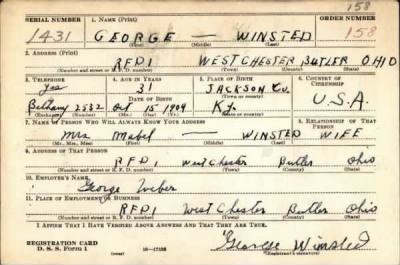 158
SERIAL NUMBER 1. NAME (Print) ORDER NUMBER
1431 GEORGE — WINSTED 158
(First) (Middle) (Last)
2. ADDRESS (Print)
RFD1 WEST CHESTER BUTLER OHIO
(Number and street or R. F. D. number) (Town) (County) (State)
3. TELEPHONE 4. AGE IN YEARS 5. PLACE OF BIRTH 6. COUNTRY OF CITIZENSHIP
yes 31 JACKSON Co.
(Town or county)
DATE OF BIRTH
Bethany 2532 Oct 15 1909 Ky. U.S.A.
(Exchange) (Number) (Mo.) (Day) (Yr.) (State or country)
7. NAME OF PERSON WHO WILL ALWAYS KNOW YOUR ADDRESS 8. RELATIONSHIP OF THAT PERSON
Mrs Mabel — WINSTED WIFE
(Mr., Mrs., Miss) (First) (Middle) (Last)
9. ADDRESS OF THAT PERSON
RFD1 West Chester Butler Ohio
(Number and street or R. F. D. number) (Town) (County) (State)
10. EMPLOYER'S NAME
George Weber
11. PLACE OF EMPLOYMENT OR BUSINESS
RFD1 West Chester Butler Ohio
(Number and street or R. F. D. number) (Town) (County) (State)
I AFFIRM THAT I HAVE VERIFIED ABOVE ANSWERS AND THAT THEY ARE TRUE.
REGISTRATION CARD
D. S. S. Form 1 George Winsted
(Registrant's signature)